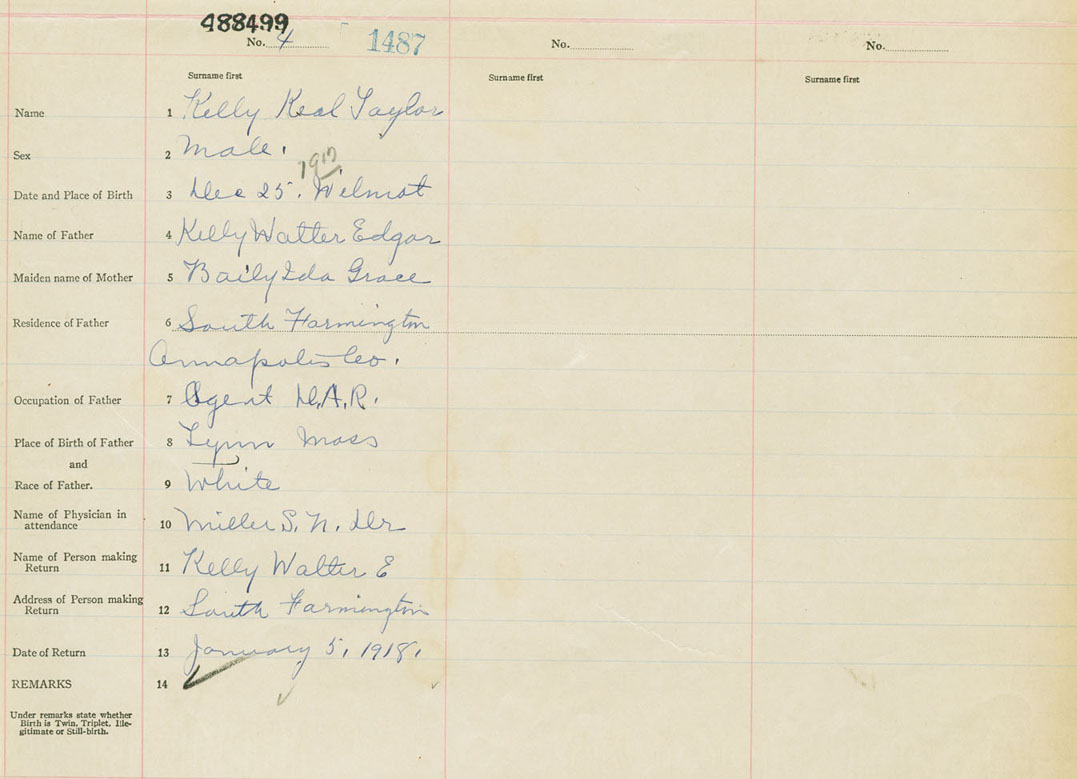 488499
No. 4 1487 No. No.
Surname first Surname first Surname first
Name 1 Kelly Keal Taylor
Sex 2 Male.
1917
Date and Place of Birth 3 Dec 25. Wilmot
Name of Father 4 Kelly Walter Edgar
Maiden name of Mother 5 Baily Ida Grace
Residence of Father 6 South Farmington
Annapolis Co.
Occupation of Father 7 Agent D.A.R.
Place of Birth of Father 8 Lynn Mass
and
Race of Father. 9 White
Name of Physician in
attendance 10 Miller S. N. Dr
Name of Person making
Return 11 Kelly Walter E
Address of Person making
Return 12 South Farmington
Date of Return 13 January 5, 1918.
REMARKS 14
Under remarks state whether
Birth is Twin, Triplet, Ille-
gitimate or Still-birth.